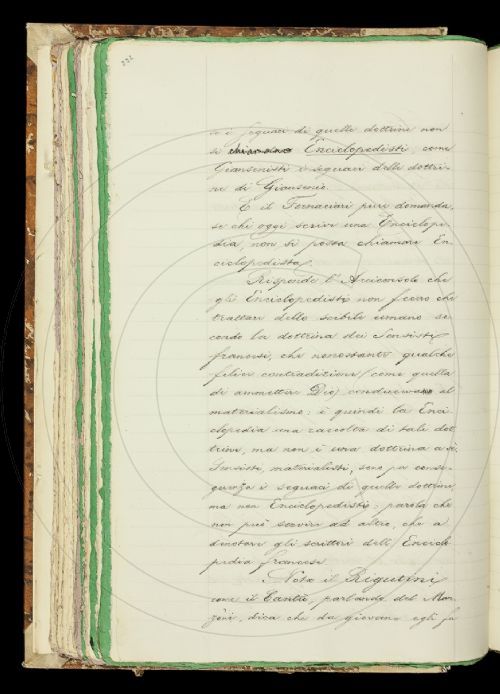 222
e i seguaci di quelle dottrine non
si chiamano Enciclopedisti, come
Giansenisti i seguaci delle dottri-
ne di Giansenio.
E il Fornaciari pure domanda,
se chi oggi scrive una Enciclope-
dia, non si possa chiamare En-
ciclopedista.
Risponde l'Arciconsolo che
gli Enciclopedisti non fecero che
trattare dello scibile umano se-
condo la dottrina dei Sensisti
francesi, che nonostante qualche
felice contradizione (come quella
di ammettere Dio) conducevano al
materialismo: e quindi la Enci-
clopedia una raccolta di tali dot-
trine, ma non è una dottrina a sè.
Sensisti, materialisti, sono per conse-
guenza i seguaci di quelle dottrine,
ma non Enciclopedisti; parola che
non può servire ad altro, che a
denotare gli scrittori dell'Enciclo-
pedia francese.
Nota il Rigutini
come il Cantù, parlando del Man-
zoni, dica che da giovane egli fu